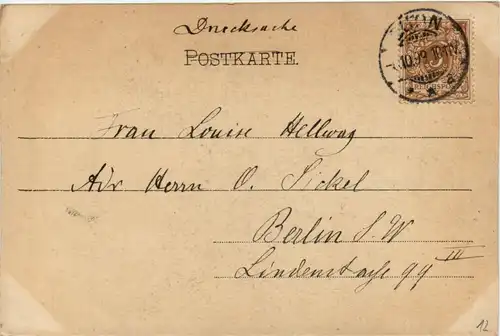 Drucksache
POSTKARTE.
10.99
Frau Louise Hellwag
Adr Herrn O. Sickel
Berlin S. W
Lindenstraße 99 III
12